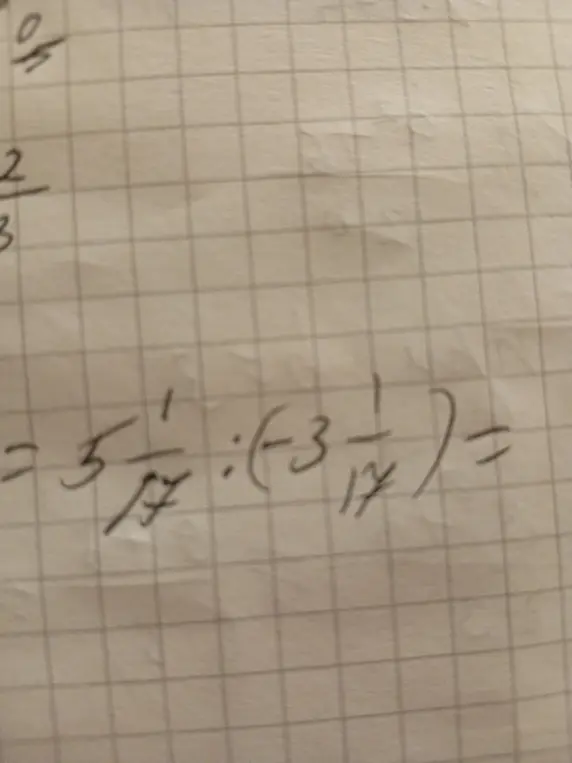 0
2
3
= 5 1/17 : (-3 1/17) =